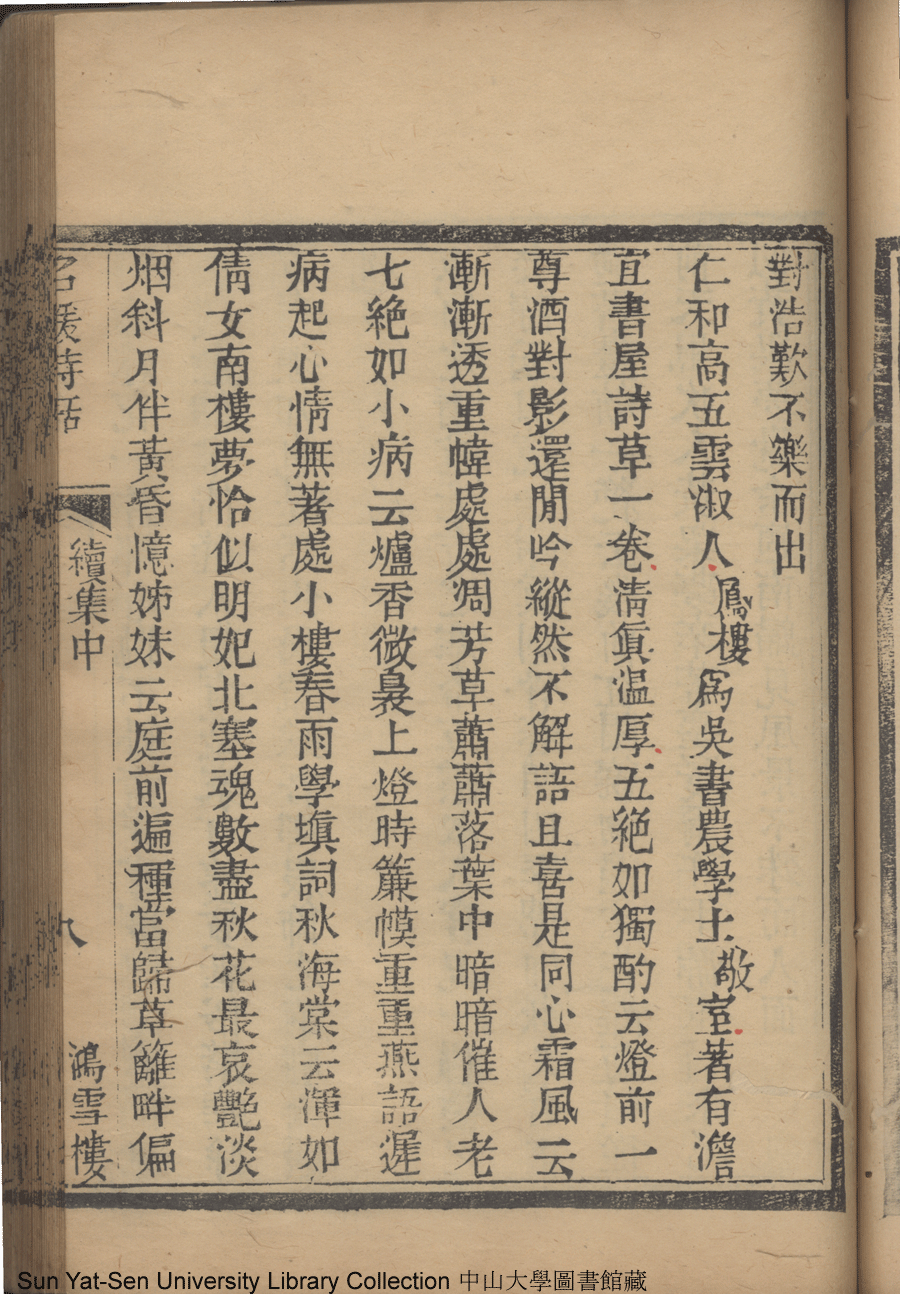 對浩歎不樂而出
仁和高五雲淑人鳳樓爲吳書農學士敬室著有澹
宜書屋詩草一卷淸眞温厚五絕如獨酌云燈前一
尊酒對影還閒吟縱然不解語且喜是同心霜風云
漸漸透重幃處處凋芳草蕭蕭落葉中暗暗催人老
七絕如小病云爐香微裊上燈時簾幙重重燕語遲
病起心情無著處小樓春雨學塡詞秋海棠云渾如
倩女南樓夢恰似明妃北塞魂數盡秋花最哀艷淡
烟斜月伴黃昏憶姊妹云庭前遍種當歸草籬畔偏
名媛詩話 續集中 八 鴻雪樓
Sun Yat-Sen University Library Collection 中山大學圖書館藏